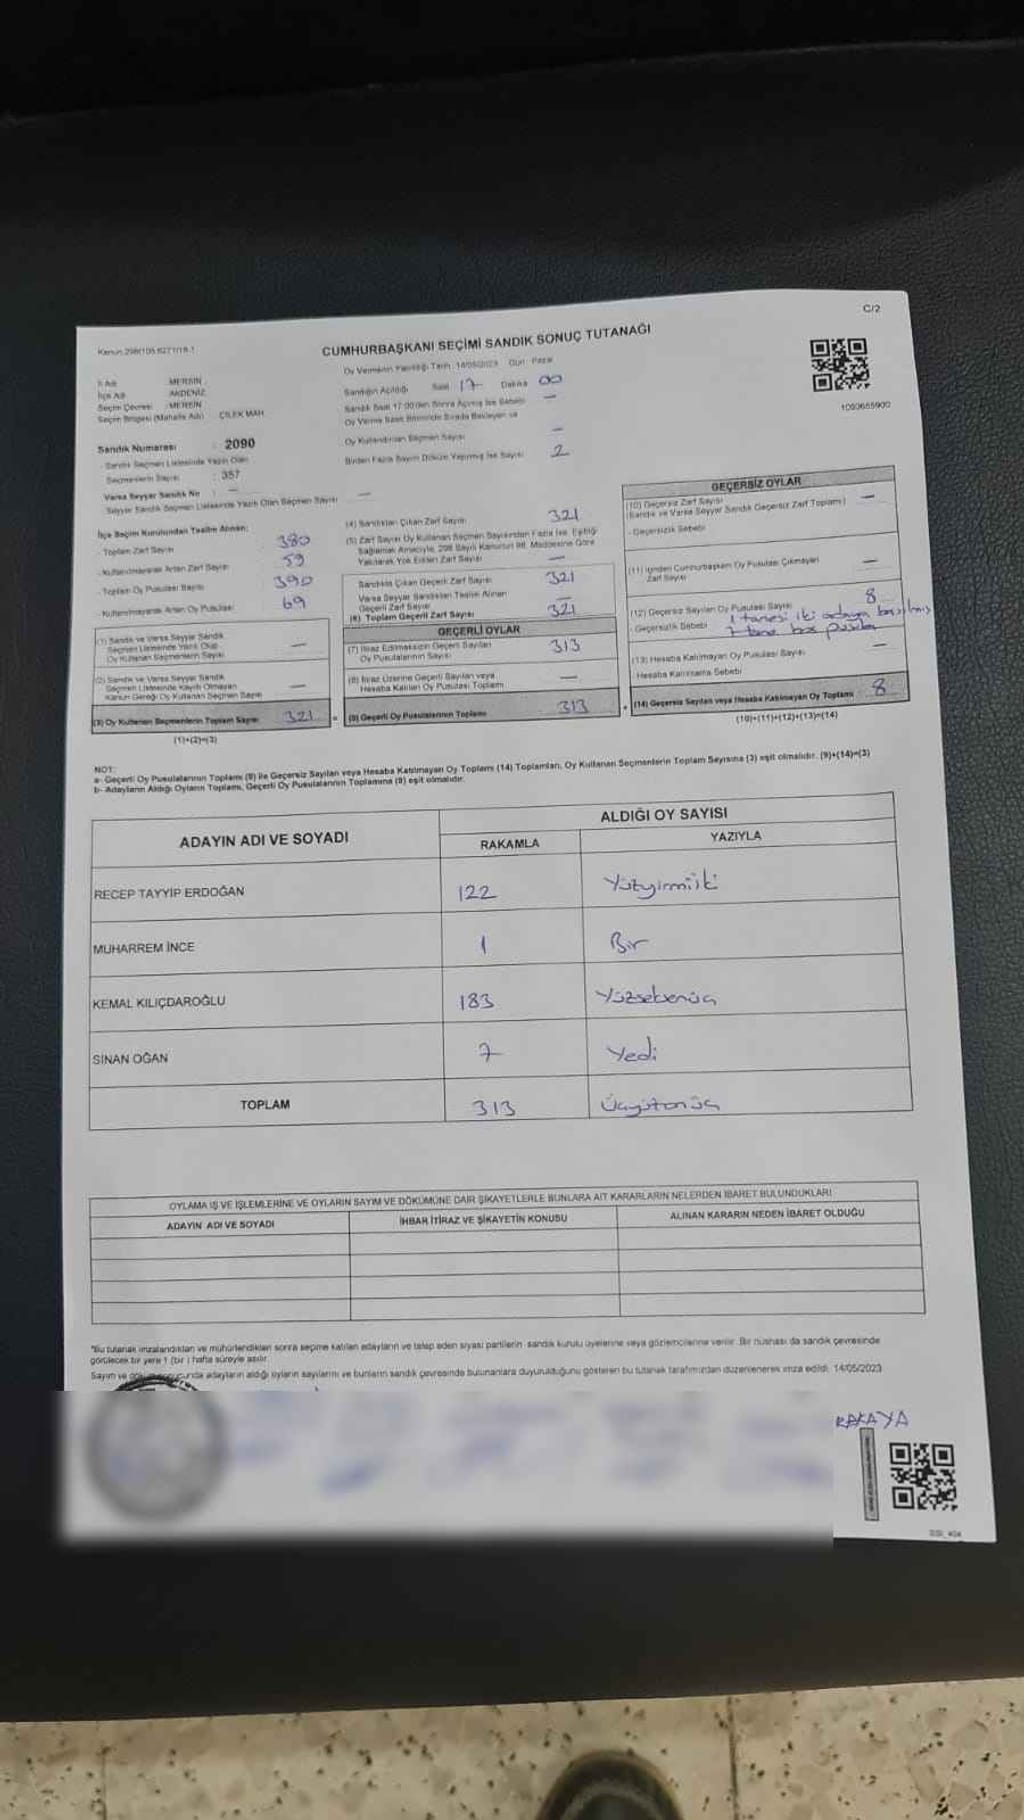 C/2
Kanun:298/105,6271/18-1
CUMHURBAŞKANI SEÇİMİ SANDIK SONUÇ TUTANAĞI
İl Adı : MERSİN
İlçe Adı : AKDENİZ
Seçim Çevresi : MERSİN
Seçim Bölgesi (Mahalle Adı) : ÇİLEK MAH.
Sandık Numarası : 2090
Sandık Seçmen Listesinde Yazılı Olan
Seçmenlerin Sayısı : 357
Varsa Seyyar Sandık No : —
Seyyar Sandık Seçmen Listesinde Yazılı Olan Seçmen Sayısı —
Oy Vermenin Yapıldığı Tarih : 14/05/2023 Gün : Pazar
Sandığın Açıldığı Saat 17 Dakika 00
Sandık Saat 17:00'den Sonra Açılmış İse Sebebi —
Oy Verme Saati Bitiminde Sırada Bekleyen ve
Oy Kullandırılan Seçmen Sayısı —
Birden Fazla Sayım Döküm Yapılmış İse Sayısı 2
1093655900
İlçe Seçim Kurulundan Teslim Alınan;
Toplam Zarf Sayısı 380
Kullanılmayarak Artan Zarf Sayısı 59
Toplam Oy Pusulası Sayısı 390
Kullanılmayarak Artan Oy Pusulası 69
(1) Sandık ve Varsa Seyyar Sandık
Seçmen Listesinde Yazılı Olup
Oy Kullanan Seçmenlerin Sayısı —
(2) Sandık ve Varsa Seyyar Sandık
Seçmen Listesinde Kayıtlı Olmayan
Kanun Gereği Oy Kullanan Seçmen Sayısı —
(3) Oy Kullanan Seçmenlerin Toplam Sayısı 321
(1)+(2)=(3)
(4) Sandıktan Çıkan Zarf Sayısı 321
(5) Zarf Sayısı Oy Kullanan Seçmen Sayısından Fazla İse, Eşitliği
Sağlamak Amacıyla, 298 Sayılı Kanunun 98. Maddesine Göre
Yakılarak Yok Edilen Zarf Sayısı —
Sandıkta Çıkan Geçerli Zarf Sayısı 321
Varsa Seyyar Sandıktan Teslim Alınan
Geçerli Zarf Sayısı —
(6) Toplam Geçerli Zarf Sayısı 321
GEÇERLİ OYLAR
(7) İtiraz Edilmeksizin Geçerli Sayılan
Oy Pusulalarının Sayısı 313
(8) İtiraz Üzerine Geçerli Sayılan veya
Hesaba Katılan Oy Pusulası Toplamı —
= (9) Geçerli Oy Pusulalarının Toplamı 313
GEÇERSİZ OYLAR
(10) Geçersiz Zarf Sayısı —
(Sandık ve Varsa Seyyar Sandık Geçersiz Zarf Toplamı)
- Geçersizlik Sebebi
(11) İçinden Cumhurbaşkanı Oy Pusulası Çıkmayan
Zarf Sayısı —
(12) Geçersiz Sayılan Oy Pusulası Sayısı 8
- Geçersizlik Sebebi 1 tanesi iki adaya basılmış
7 tane boş pusula
(13) Hesaba Katılmayan Oy Pusulası Sayısı —
Hesaba Katılmama Sebebi
+ (14) Geçersiz Sayılan veya Hesaba Katılmayan Oy Toplamı 8
(10)+(11)+(12)+(13)=(14)
NOT:
a- Geçerli Oy Pusulalarının Toplamı (9) ile Geçersiz Sayılan veya Hesaba Katılmayan Oy Toplamı (14) Toplamları, Oy Kullanan Seçmenlerin Toplam Sayısına (3) eşit olmalıdır. (9)+(14)=(3)
b- Adayların Aldığı Oyların Toplamı, Geçerli Oy Pusulalarının Toplamına (9) eşit olmalıdır.
ADAYIN ADI VE SOYADI
ALDIĞI OY SAYISI
RAKAMLA YAZIYLA
RECEP TAYYİP ERDOĞAN 122 Yüzyirmiiki
MUHARREM İNCE 1 Bir
KEMAL KILIÇDAROĞLU 183 Yüzseksenüç
SİNAN OĞAN 7 Yedi
TOPLAM 313 Üçyüzonüç
OYLAMA İŞ VE İŞLEMLERİNE VE OYLARIN SAYIM VE DÖKÜMÜNE DAİR ŞİKAYETLERLE BUNLARA AİT KARARLARIN NELERDEN İBARET BULUNDUKLARI
ADAYIN ADI VE SOYADI İHBAR İTİRAZ VE ŞİKAYETİN KONUSU ALINAN KARARIN NEDEN İBARET OLDUĞU
*Bu tutanak imzalandıktan ve mühürlendikten sonra seçime katılan adayların ve talep eden siyasi partilerin sandık kurulu üyelerine veya gözlemcilerine verilir. Bir nüshası da sandık çevresinde
görülecek bir yere 1 (bir) hafta süreyle asılır.
Sayım ve döküm sonucunda adayların aldığı oyların sayılarını ve bunların sandık çevresinde bulunanlara duyurulduğunu gösteren bu tutanak tarafımızdan düzenlenerek imza edildi. 14/05/2023
RAKAYA